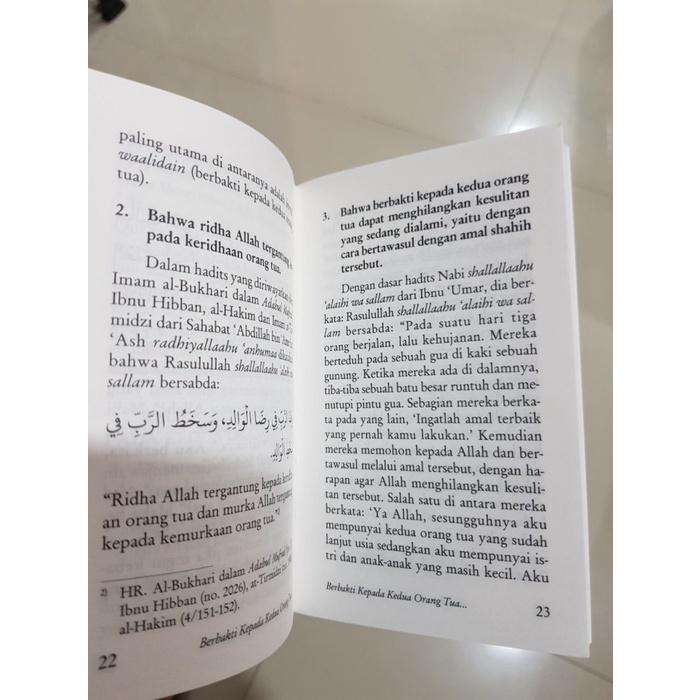 paling utama di antaranya adalah
waalidain (berbakti kepada kedua
tua).
2. Bahwa ridha Allah tergantung
pada keridhaan orang tua.
Dalam hadits yang diriwayatkan
Imam al-Bukhari dalam Adabul
Ibnu Hibban, al-Hakim dan Imam
midzi dari Sahabat ‘Abdillah bin
‘Ash radhiyallaahu ‘anhumaa
bahwa Rasulullah shallallaahu ‘alaihi
sallam bersabda:
فِي رِضَا الْوَالِدِ، وَسَخَطُ الرَّبِّ فِي
الْوَالِدِ.
“Ridha Allah tergantung kepada
an orang tua dan murka Allah
kepada kemurkaan orang tua.”²
2) HR. Al-Bukhari dalam Adabul Mufrad
Ibnu Hibban (no. 2026), at-Tirmidzi
al-Hakim (4/151-152).
Berbakti Kepada Kedua Orang
22
3. Bahwa berbakti kepada kedua orang
tua dapat menghilangkan kesulitan
yang sedang dialami, yaitu dengan
cara bertawasul dengan amal shahih
tersebut.
Dengan dasar hadits Nabi shallallaahu
‘alaihi wa sallam dari Ibnu ‘Umar, dia ber-
kata: Rasulullah shallallaahu ‘alaihi wa sal-
lam bersabda: “Pada suatu hari tiga
orang berjalan, lalu kehujanan. Mereka
berteduh pada sebuah gua di kaki sebuah
gunung. Ketika mereka ada di dalamnya,
tiba-tiba sebuah batu besar runtuh dan me-
nutupi pintu gua. Sebagian mereka berka-
ta pada yang lain, ‘Ingatlah amal terbaik
yang pernah kamu lakukan.’ Kemudian
mereka memohon kepada Allah dan ber-
tawasul melalui amal tersebut, dengan ha-
rapan agar Allah menghilangkan kesuli-
tan tersebut. Salah satu di antara mereka
berkata: ‘Ya Allah, sesungguhnya aku
mempunyai kedua orang tua yang sudah
lanjut usia sedangkan aku mempunyai is-
tri dan anak-anak yang masih kecil. Aku
Berbakti Kepada Kedua Orang Tua...
23